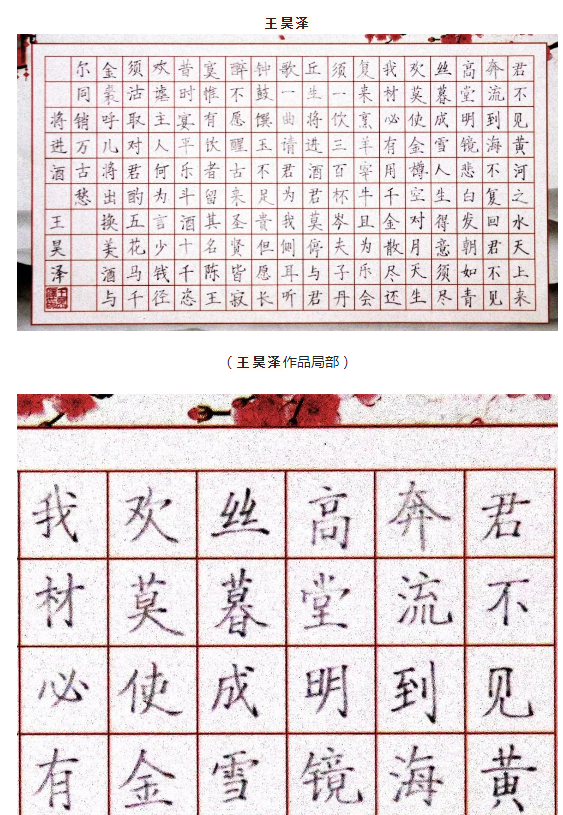 王昊泽
君不见黄河之水天上来
奔流到海不复回君不见
高堂明镜悲白发朝如青
丝暮成雪人生得意须尽
欢莫使金樽空对月天生
我材必有用千金散尽还
复来烹羊宰牛且为乐会
须一饮三百杯岑夫子丹
丘生将进酒君莫停与君
歌一曲请君为我侧耳听
钟鼓馔玉不足贵但愿长
醉不愿醒古来圣贤皆寂
寞惟有饮者留其名陈王
昔时宴平乐斗酒十千恣
欢谑主人何为言少钱径
须沽取对君酌五花马千
金裘呼儿将出换美酒与
尔同销万古愁
将进酒 王昊泽
（王昊泽作品局部）
君不见黄
奔流到海
高堂明镜
丝暮成雪
欢莫使金
我材必有